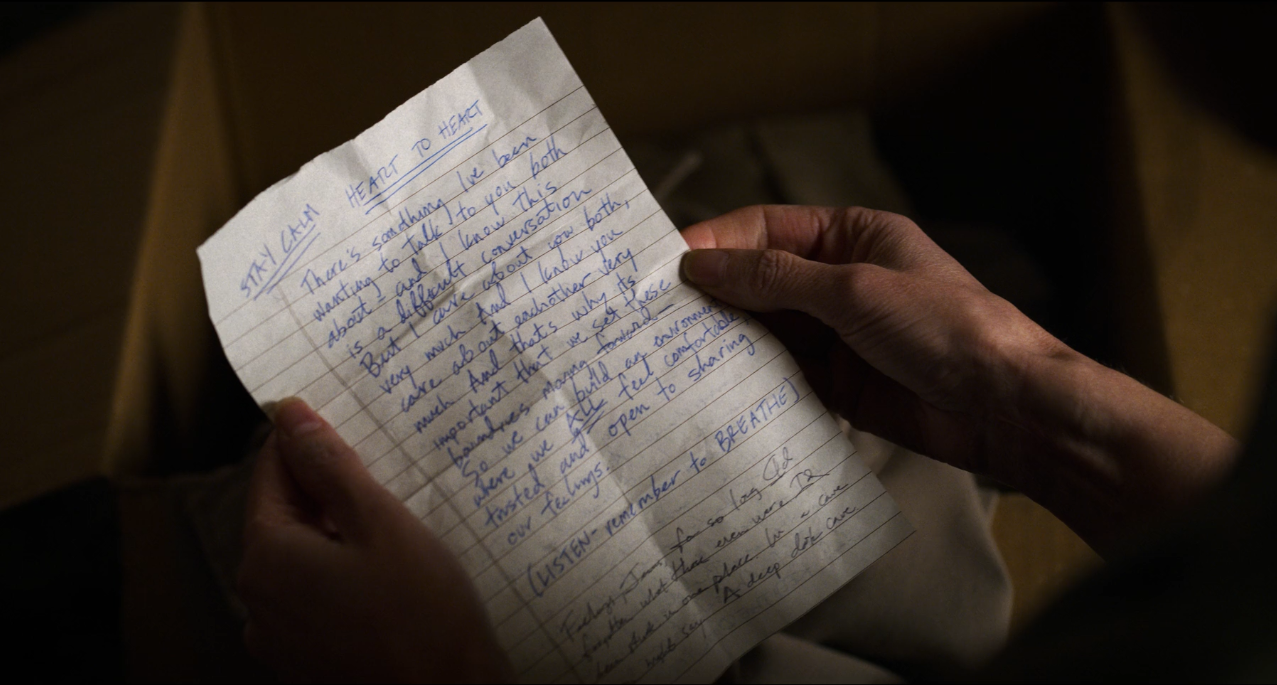 STAY CALM HEART TO HEART
There's something I've been
wanting to talk to you both
about - and I know this
is a difficult conversation
But I care about you both,
very much And I know you
care about eachother very
much And that's why its
important that we set these
boundaries moving forward—
So we can build an environment
where we ALL feel comfortable,
trusted and open to sharing
our feelings.
(LISTEN- remember to BREATHE)
Feelings Jesus for so long I'd
forgotten what those even were I'd
been stuck in one place, in a cave
might say A deep dark cave